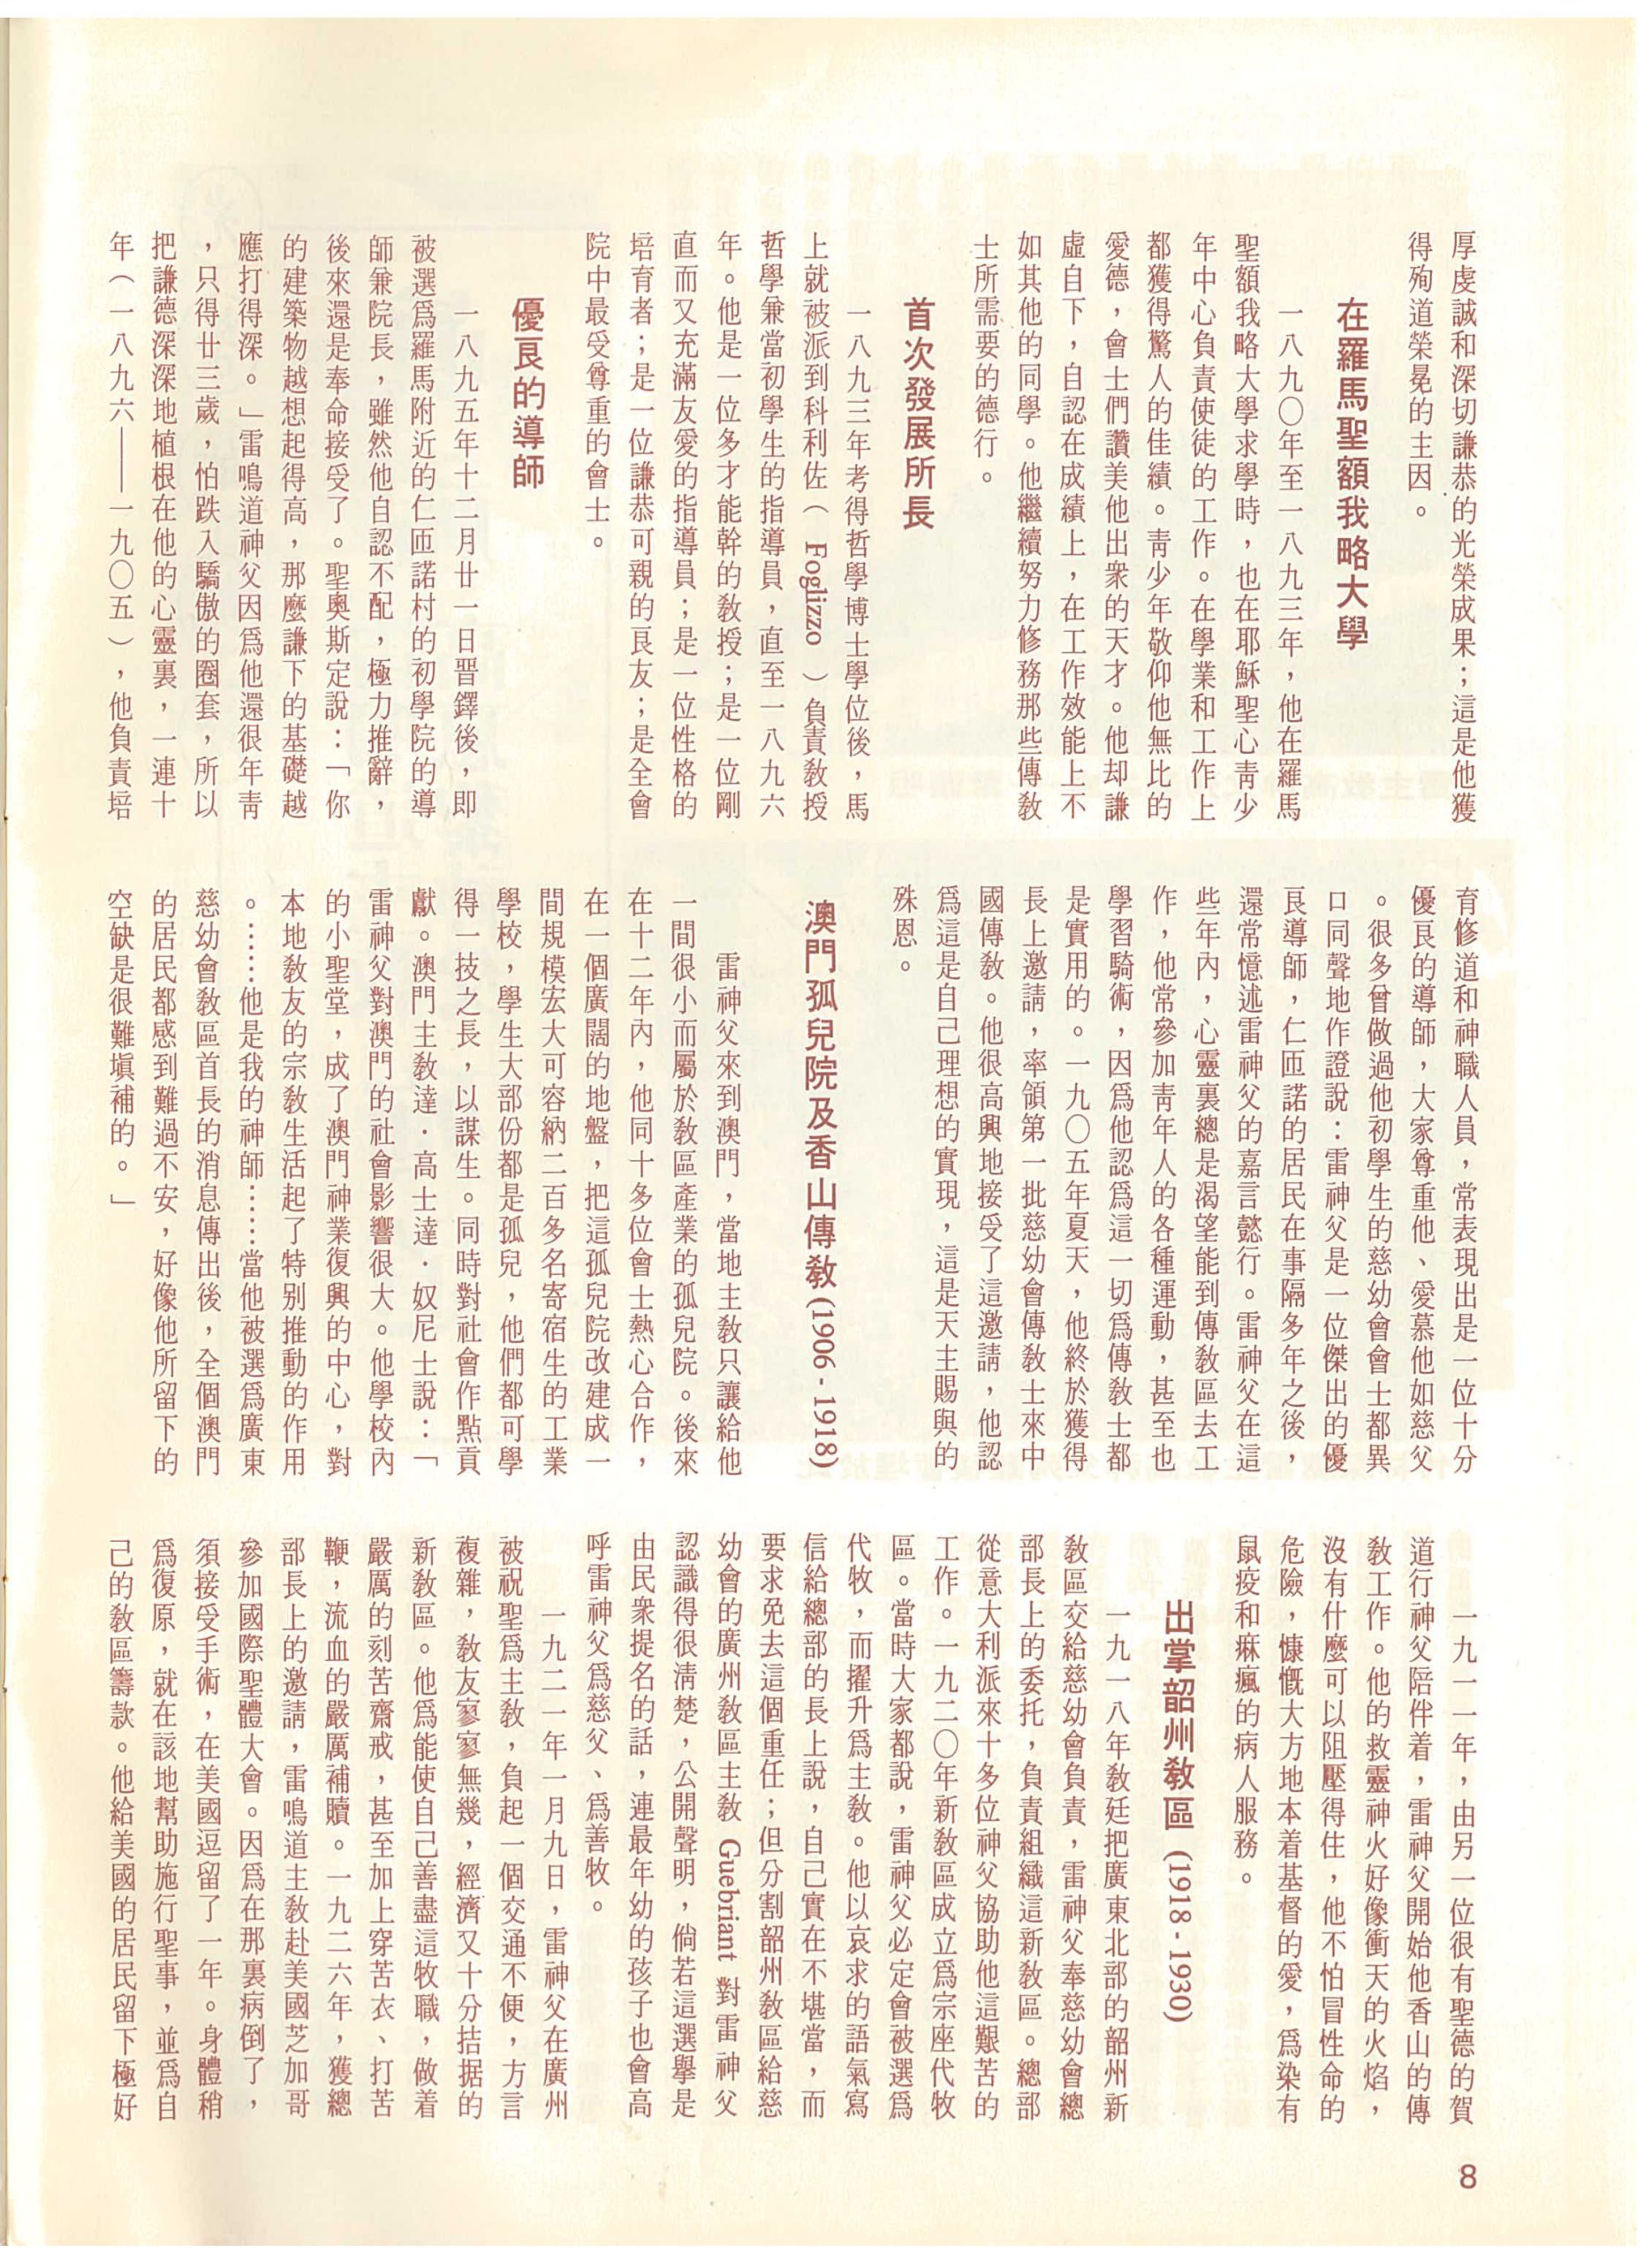 厚虔誠和深切謙恭的光榮成果；這是他獲
得殉道榮冕的主因。
在羅馬聖額我略大學
一八九〇年至一八九三年，他在羅馬
聖額我略大學求學時，也在耶穌聖心靑少
年中心負責使徒的工作。在學業和工作上
都獲得驚人的佳績。靑少年敬仰他無比的
愛德，會士們讚美他出衆的天才。他却謙
虛自下，自認在成績上，在工作效能上不
如其他的同學。他繼續努力修務那些傳敎
士所需要的德行。
首次發展所長
一八九三年考得哲學博士學位後，馬
上就被派到科利佐（ Foglizzo ）負責敎授
哲學兼當初學生的指導員，直至一八九六
年。他是一位多才能幹的敎授；是一位剛
直而又充滿友愛的指導員；是一位性格的
培育者；是一位謙恭可親的良友；是全會
院中最受尊重的會士。
優良的導師
一八九五年十二月廿一日晋鐸後，即
被選爲羅馬附近的仁匝諾村的初學院的導
師兼院長，雖然他自認不配，極力推辭，
後來還是奉命接受了。聖奧斯定說：「你
的建築物越想起得高，那麼謙下的基礎越
應打得深。」雷鳴道神父因爲他還很年靑
，只得廿三歲，怕跌入驕傲的圈套，所以
把謙德深深地植根在他的心靈裏，一連十
年（一八九六——一九〇五），他負責培
育修道和神職人員，常表現出是一位十分
優良的導師，大家尊重他、愛慕他如慈父
。很多曾做過他初學生的慈幼會會士都異
口同聲地作證說：雷神父是一位傑出的優
良導師，仁匝諾的居民在事隔多年之後，
還常憶述雷神父的嘉言懿行。雷神父在這
些年內，心靈裏總是渴望能到傳敎區去工
作，他常參加靑年人的各種運動，甚至也
學習騎術，因爲他認爲這一切爲傳敎士都
是實用的。一九〇五年夏天，他終於獲得
長上邀請，率領第一批慈幼會傳敎士來中
國傳敎。他很高興地接受了這邀請，他認
爲這是自己理想的實現，這是天主賜與的
殊恩。
澳門孤兒院及香山傳敎(1906 - 1918)
雷神父來到澳門，當地主敎只讓給他
一間很小而屬於敎區產業的孤兒院。後來
在十二年內，他同十多位會士熱心合作，
在一個廣闊的地盤，把這孤兒院改建成一
間規模宏大可容納二百多名寄宿生的工業
學校，學生大部份都是孤兒，他們都可學
得一技之長，以謀生。同時對社會作點貢
獻。澳門主敎達．高士達．奴尼士說：「
雷神父對澳門的社會影響很大。他學校內
的小聖堂，成了澳門神業復興的中心，對
本地敎友的宗敎生活起了特别推動的作用
。……他是我的神師……當他被選爲廣東
慈幼會敎區首長的消息傳出後，全個澳門
的居民都感到難過不安，好像他所留下的
空缺是很難塡補的。」
一九一一年，由另一位很有聖德的賀
道行神父陪伴着，雷神父開始他香山的傳
敎工作。他的救靈神火好像衝天的火焰，
沒有什麼可以阻壓得住，他不怕冒性命的
危險，慷慨大方地本着基督的愛，爲染有
鼠疫和麻瘋的病人服務。
出掌韶州敎區 (1918 - 1930)
一九一八年敎廷把廣東北部的韶州新
敎區交給慈幼會負責，雷神父奉慈幼會總
部長上的委托，負責組織這新敎區。總部
從意大利派來十多位神父協助他這艱苦的
工作。一九二〇年新敎區成立爲宗座代牧
區。當時大家都說，雷神父必定會被選爲
代牧，而擢升爲主敎。他以哀求的語氣寫
信給總部的長上說，自己實在不堪當，而
要求免去這個重任；但分割韶州敎區給慈
幼會的廣州敎區主敎 Guebriant 對雷神父
認識得很淸楚，公開聲明，倘若這選舉是
由民衆提名的話，連最年幼的孩子也會高
呼雷神父爲慈父、爲善牧。
一九二一年一月九日，雷神父在廣州
被祝聖爲主敎，負起一個交通不便，方言
複雜，敎友寥寥無幾，經濟又十分拮据的
新敎區。他爲能使自己善盡這牧職，做着
嚴厲的刻苦齋戒，甚至加上穿苦衣、打苦
鞭，流血的嚴厲補贖。一九二六年，獲總
部長上的邀請，雷鳴道主敎赴美國芝加哥
參加國際聖體大會。因爲在那裏病倒了，
須接受手術，在美國逗留了一年。身體稍
爲復原，就在該地幫助施行聖事，並爲自
己的敎區籌款。他給美國的居民留下極好
8